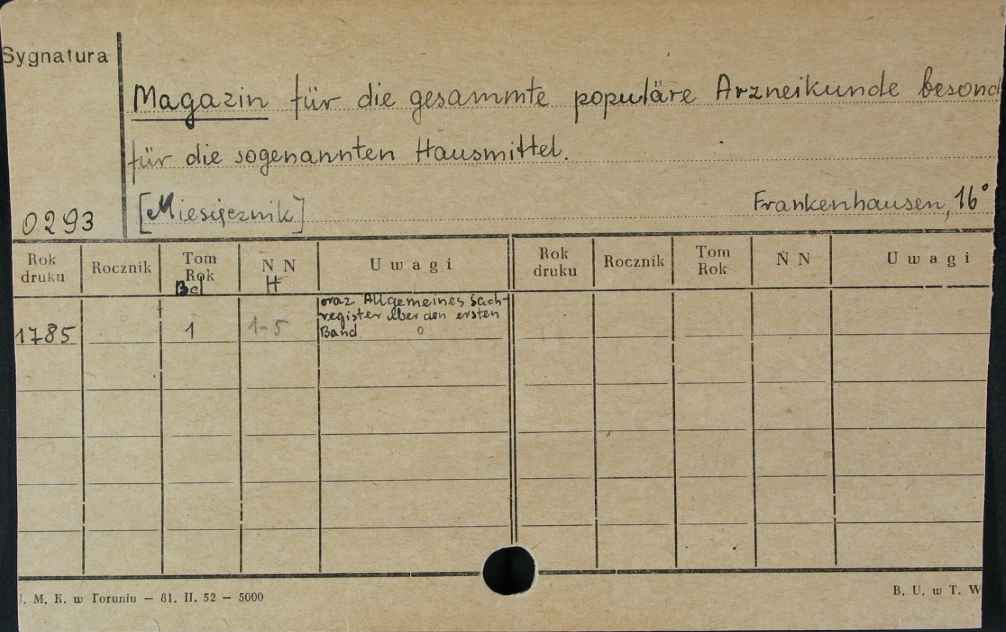 Sygnatura
Magazin für die gesammte populäre Arzneikunde besond
für die sogenannten Hausmittel.
0293 [Miesięcznik] Frankenhausen, 16°
Rok druku Rocznik Tom Rok Bd N N H Uwagi Rok druku Rocznik Tom Rok N N Uwagi
oraz Allgemeines Sach-
register über den ersten
1785 1 1-5 Band
. M. K. w Toruniu — 61. II. 52 — 5000 B. U. w T. W